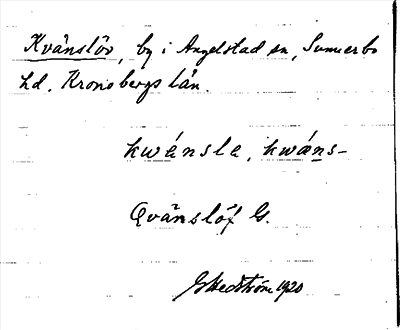 Kvänslöv, by i Angelstad sn, Sunnerbo
hd. Kronobergs län.
kwánsla, kwáns-
Qvänslöf G.
GHedström 1920